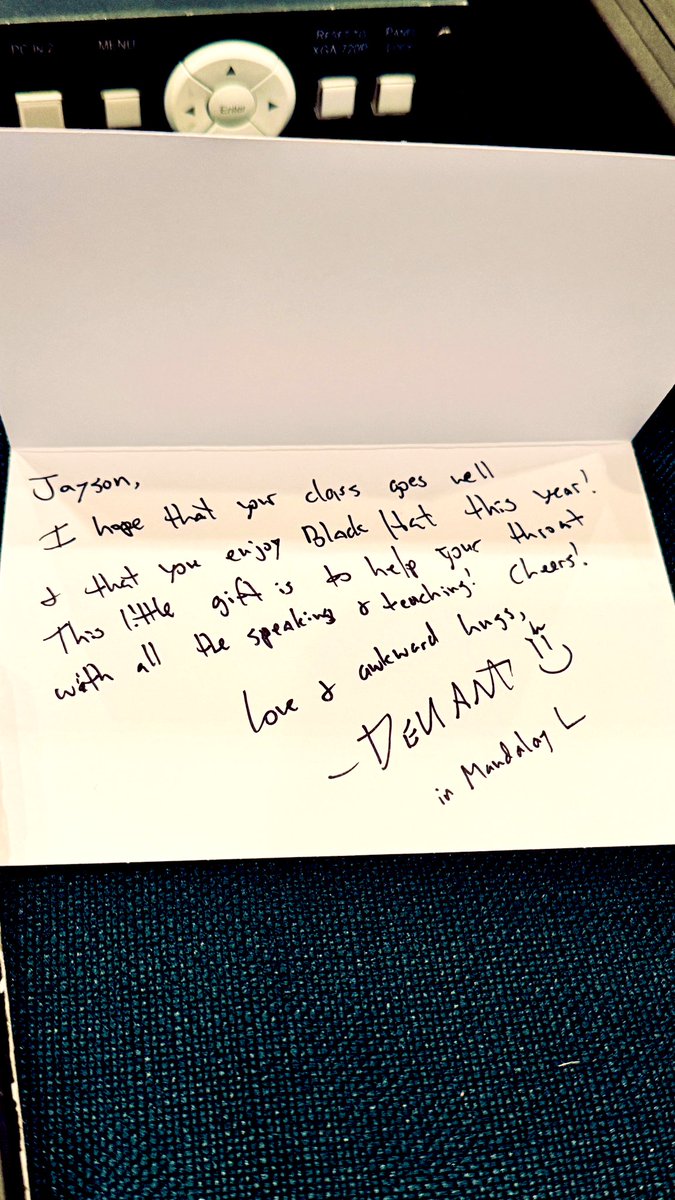 PC IN 2
MENU
RESET TO
XGA/720P
PANEL
LOCK
Enter
Jayson,
I hope that your class goes well
& that you enjoy Black Hat this year!
This little gift is to help your throat
with all the speaking & teaching! Cheers!
Love & awkward hugs,
— DEVIANT
in Mandalay L